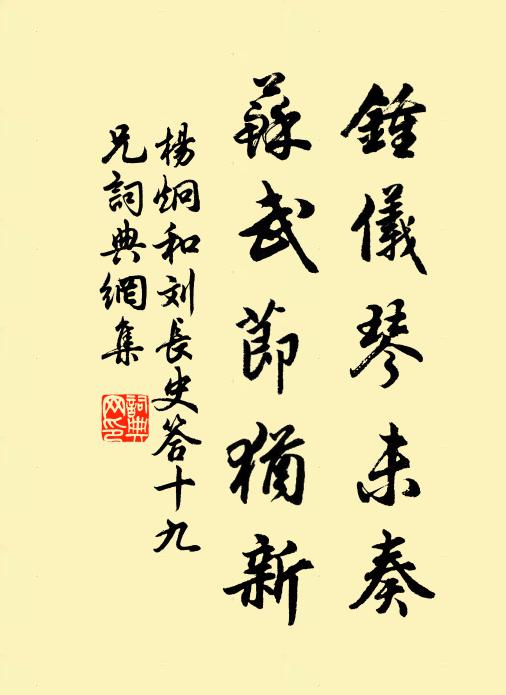 鍾儀琴未奏
蘇武節猶新
楊炯和刘長史答十九
兄詞典網集
詞典
网印